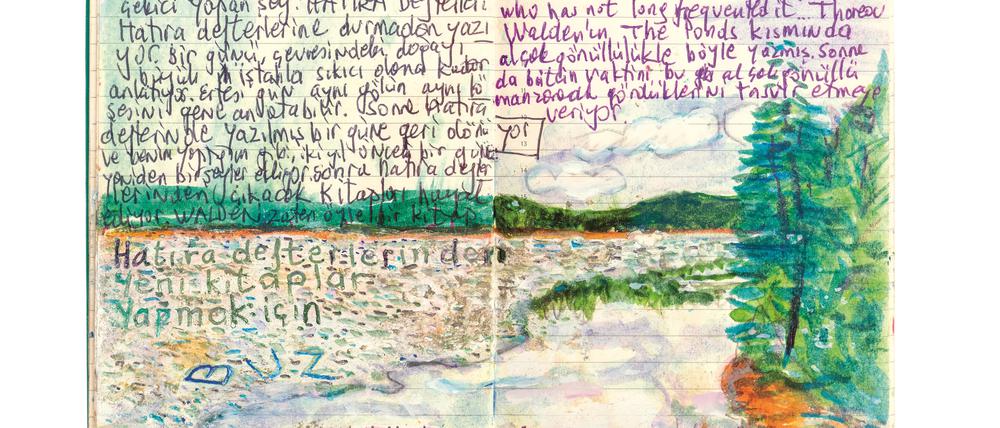 çekici yapan şey. HATIRA Defterleri
Hatıra defterlerine durmadan yazı
yor. Bir günü, çevresindeki doğayı
büyük istahla sıkıcı olana kadar
anlatıyor. Ertesi gün aynı gölün aynı kö
şesini gene anlatabilir. Sonra hatıra
defterinde yazılmış bir güne geri dönü
ve benim yaptığım gibi, iki yıl önceki bir güne
yeniden bir şeyler ekliyor. sonra hatıra defter
lerinden çıkacak kitapları hayal
ediyor. WALDEN zaten öyle bir kitap
Hatıra defterlerinden
yeni kitaplar
yapmak için
BUZ
who has not long frequented it... Thoreau
Walden'in The Ponds kısmında
alçakgönüllülükle böyle yazmış. Sonra
da bütün vaktini bu alçakgönüllü
manzarada gördüklerini tasvir etmeye
veriyor
yor
13